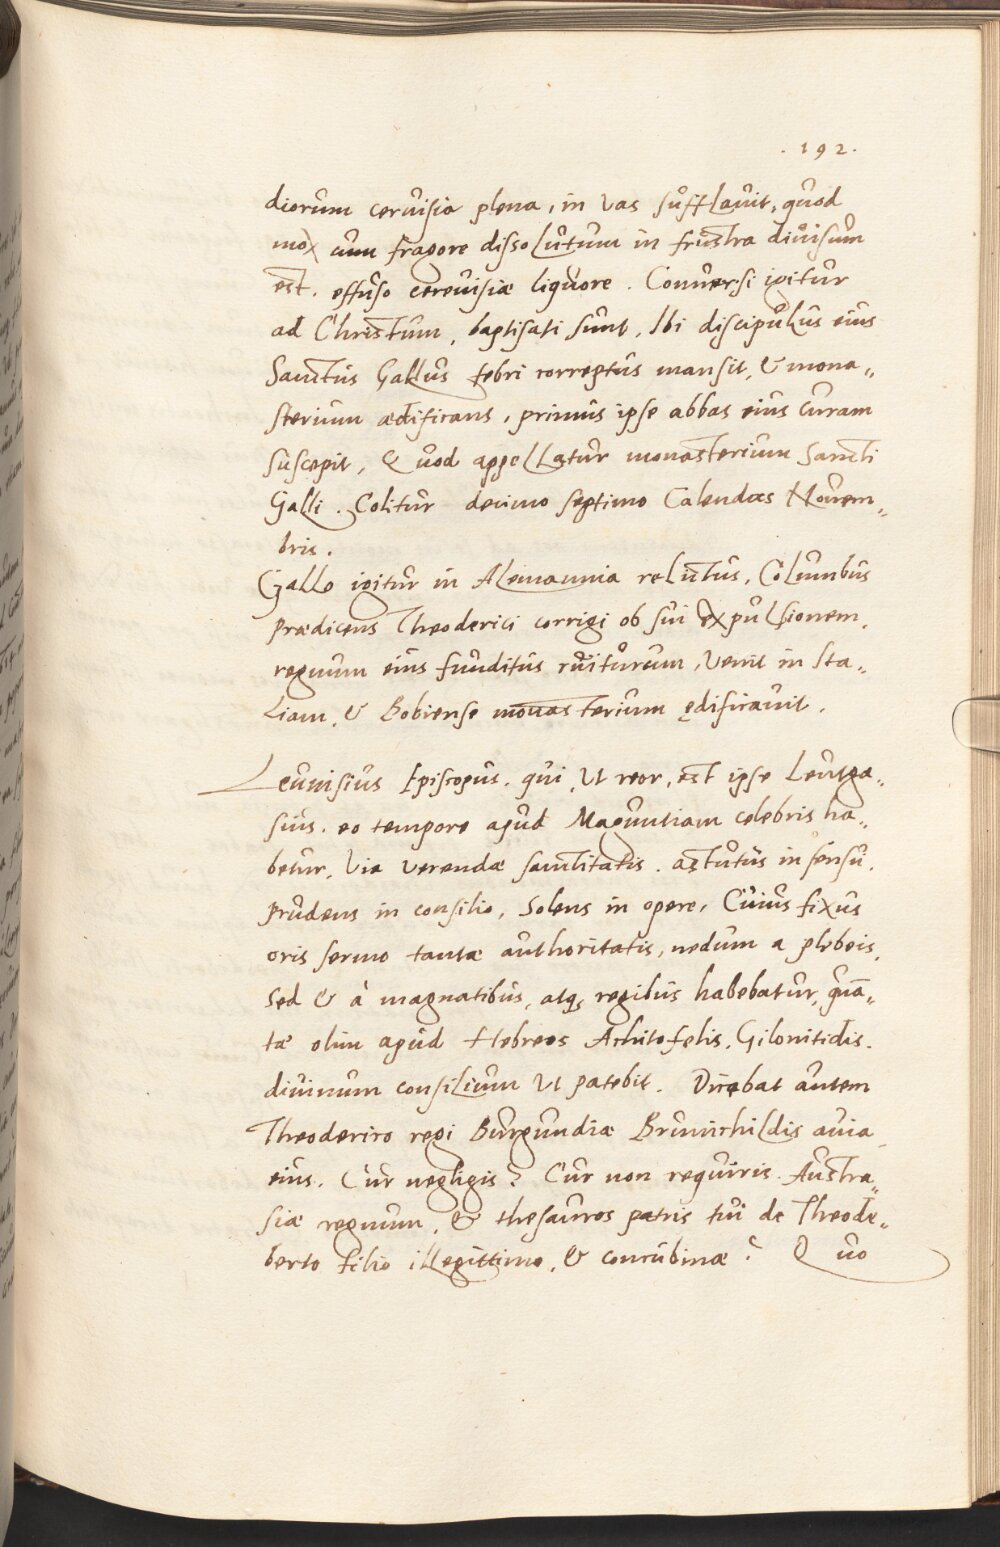 . 192 .
diorum cervisia plena, in vas sufflavit, quod
mox cum fragore dissolutum in frustra divisum
est. effuso cerevisiæ liquore. Conversi igitur
ad Christum, baptisati sunt, Ibi discipulus eius
Sanctus Gallus febri correptus mansit, & mona„
sterium ædificans, primus ipse abbas eius curam
suscepit, & quod appellatur monasterium Sancti
Galli. Colitur decimo septimo Calendas Novem„
bris.
Gallo igitur in Alemannia relictus, Columbus
prædicens Theoderici corrigi ob sui expulsionem,
regnum eius funditus ruiturum, venit in Ita„
liam, & Bobiense monasterium ędificavit.
Leunisius Episcopus. qui, ut reor, est ipse Leutga„
sius. eo tempore apud Maguntiam celebris ha„
betur. Via verendæ sanctitatis. astutus in sensu.
prudens in consilio, Solens in opere, Cuius fixus
oris sermo tantæ authoritatis, nedum a plebeis,
sed & à magnatibus, atq; regibus habebatur, quā„
tæ olim apud Hebreos Achitofelis, Gilonitidis.
divinum consilium ut patebit. Dicębat autem
Theoderico regi Burgundiæ Brunichildis avia
eius. Cur negligis? Cur non requiris Austra„
siæ regnum, & thesauros patris tui de Theode„
berto filio illegittimo, & concubinæ? Quo